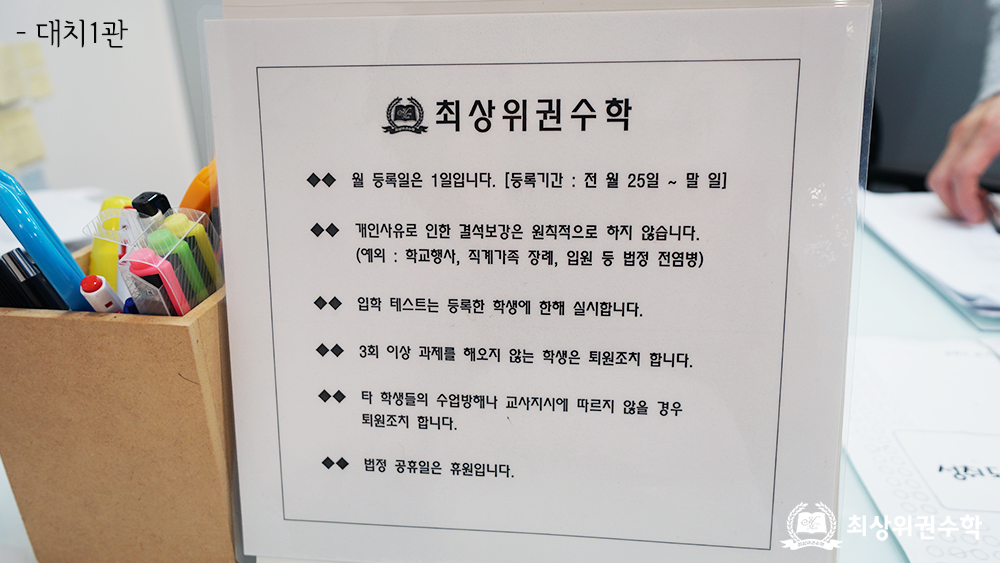 - 대치1관
최상위권수학
◆◆ 월 등록일은 1일입니다. [등록기간 : 전 월 25일 ~ 말 일]
◆◆ 개인사유로 인한 결석보강은 원칙적으로 하지 않습니다.
(예외 : 학교행사, 직계가족 장례, 입원 등 법정 전염병)
◆◆ 입학 테스트는 등록한 학생에 한해 실시합니다.
◆◆ 3회 이상 과제를 해오지 않는 학생은 퇴원조치 합니다.
◆◆ 타 학생들의 수업방해나 교사지시에 따르지 않을 경우
퇴원조치 합니다.
◆◆ 법정 공휴일은 휴원입니다.
최상위권수학